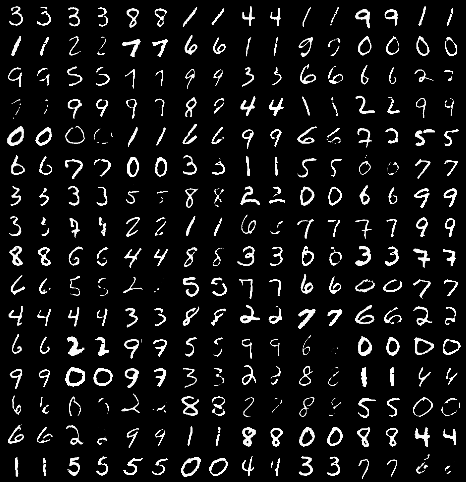 3 3 3 3 8 8 1 1 4 4 1 1 9 9 1 1
1 1 2 2 7 7 6 6 1 1 9 0 0 0 0
9 9 5 5 1 1 9 9 3 3 6 6 6 6 2 2
9 9 9 7 8 9 4 4 1 1 2 2 9 9
0 0 0 0 1 1 6 6 9 9 6 6 7 7 5 5
6 6 7 7 0 0 3 3 1 1 5 5 0 0 7 7
3 3 3 3 5 5 8 8 2 2 0 0 6 6 9 9
3 3 4 4 2 2 1 1 6 7 7 7 7 9 9
8 8 6 6 4 4 8 8 3 3 0 0 3 3 7 7
6 6 5 5 2 5 5 7 7 6 6 0 0 7 7
4 4 4 4 3 3 8 8 2 2 7 7 6 6 2 2
6 6 2 2 9 7 5 5 9 9 6 0 0 0 0
9 9 0 0 9 7 3 3 2 2 8 1 1 4 4
6 0 2 8 8 2 2 8 5 5 0 0
6 6 2 9 9 1 1 8 8 0 0 8 8 4 4
1 1 5 5 5 5 0 0 4 4 3 3 7 7 6